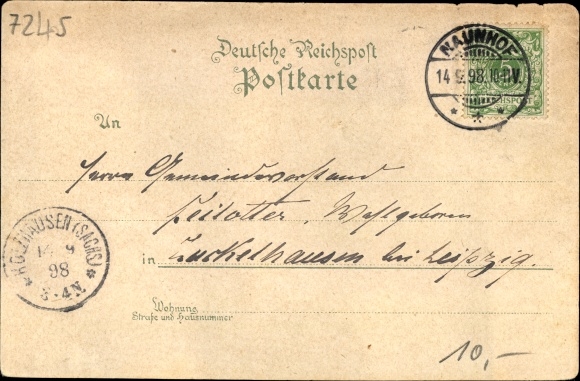 7245
Deutsche Reichspost
Postkarte
NAUNHOF
14 9.98.10-11V.
5
REICHSPOST
An
Herrn Gemeindevorstand
Wohlgeboren
in Zuckelhausen bei Leipzig.
HOLZHAUSEN (SACHS)
14 9
98
3-4N.
Wohnung
Straße und Hausnummer
10,-